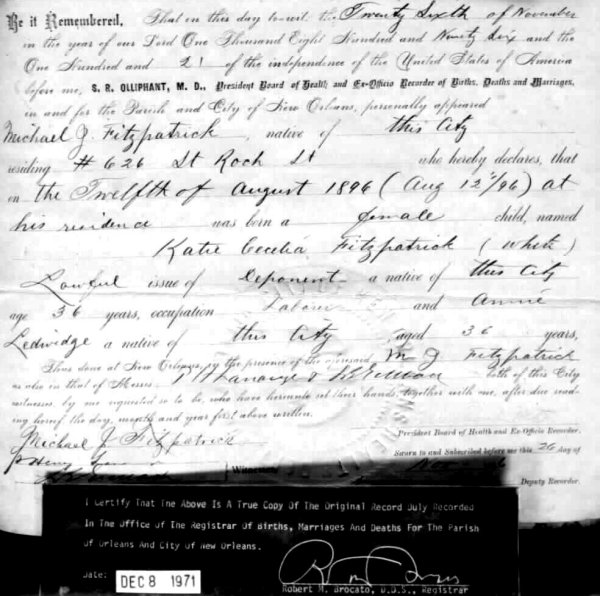 Be it Remembered, That on this day to wit: the Twenty Sixth of November
in the year of our Lord One Thousand Eight Hundred and Ninety Six and the
One Hundred and 21 of the independence of the United States of America
before me, S. R. OLLIPHANT, M. D., President Board of Health and Ex-Officio Recorder of Births, Deaths and Marriages,
in and for the Parish and City of New Orleans, personally appeared
Michael J Fitzpatrick, native of this City
residing # 626 St Roch St who hereby declares, that
on the Twelfth of August 1896 ( Aug 12"/96) at
his residence was born a female child, named
Katie Cecelia Fitzpatrick ( White )
Lawful issue of Deponent a native of this City
age 36 years, occupation Labour and Annie
Ledwidge a native of this City, aged 36 years,
Thus done at New Orleans, in the presence of the aforesaid M J Fitzpatrick
as also in that of Messrs. both of this City
witnesses, by me requested so to be, who have hereunto set their hands, together with me, after due read-
ing hereof the day, month and year first above written.
Michael J Fitzpatrick
President Board of Health and Ex-Officio Recorder.
Sworn to and Subscribed before me this 26 day of
Witnesses
Deputy Recorder.
I Certify That The Above Is A True Copy Of The Original Record Duly Recorded
In The Office of The Registrar Of Births, Marriages And Deaths For The Parish
Of Orleans And City Of New Orleans.
Date: DEC 8 1971
Robert M. Brocato, D.D.S., Registrar